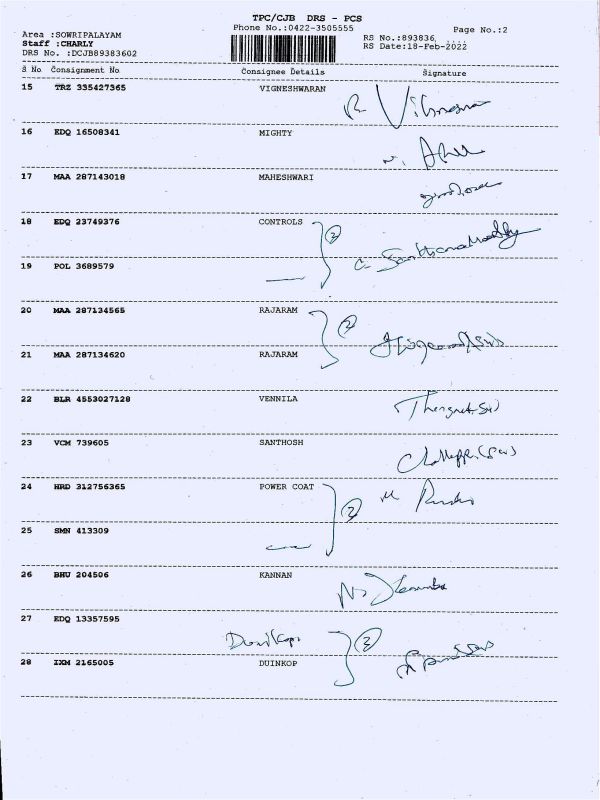 TPC/CJB DRS - PCS
Phone No.:0422-3505555
Page No.:2
Area :SOWRIPALAYAM
Staff :CHARLY
DRS No. :DCJB89383602
RS No.:893836,
RS Date:18-Feb-2022
S No Consignment No Consignee Details Signature
15 TRZ 335427365 VIGNESHWARAN
16 EDQ 16508341 MIGHTY
17 MAA 287143018 MAHESHWARI
18 EDQ 23749376 CONTROLS 2
19 POL 3689579
20 MAA 287134565 RAJARAM 2
21 MAA 287134620 RAJARAM
22 BLR 4553027128 VENNILA
23 VCM 739605 SANTHOSH
24 HRD 312756365 POWER COAT 2
25 SMN 413309
26 BHU 204506 KANNAN
27 EDQ 13357595 Duinkop 2
28 IXM 2165005 DUINKOP